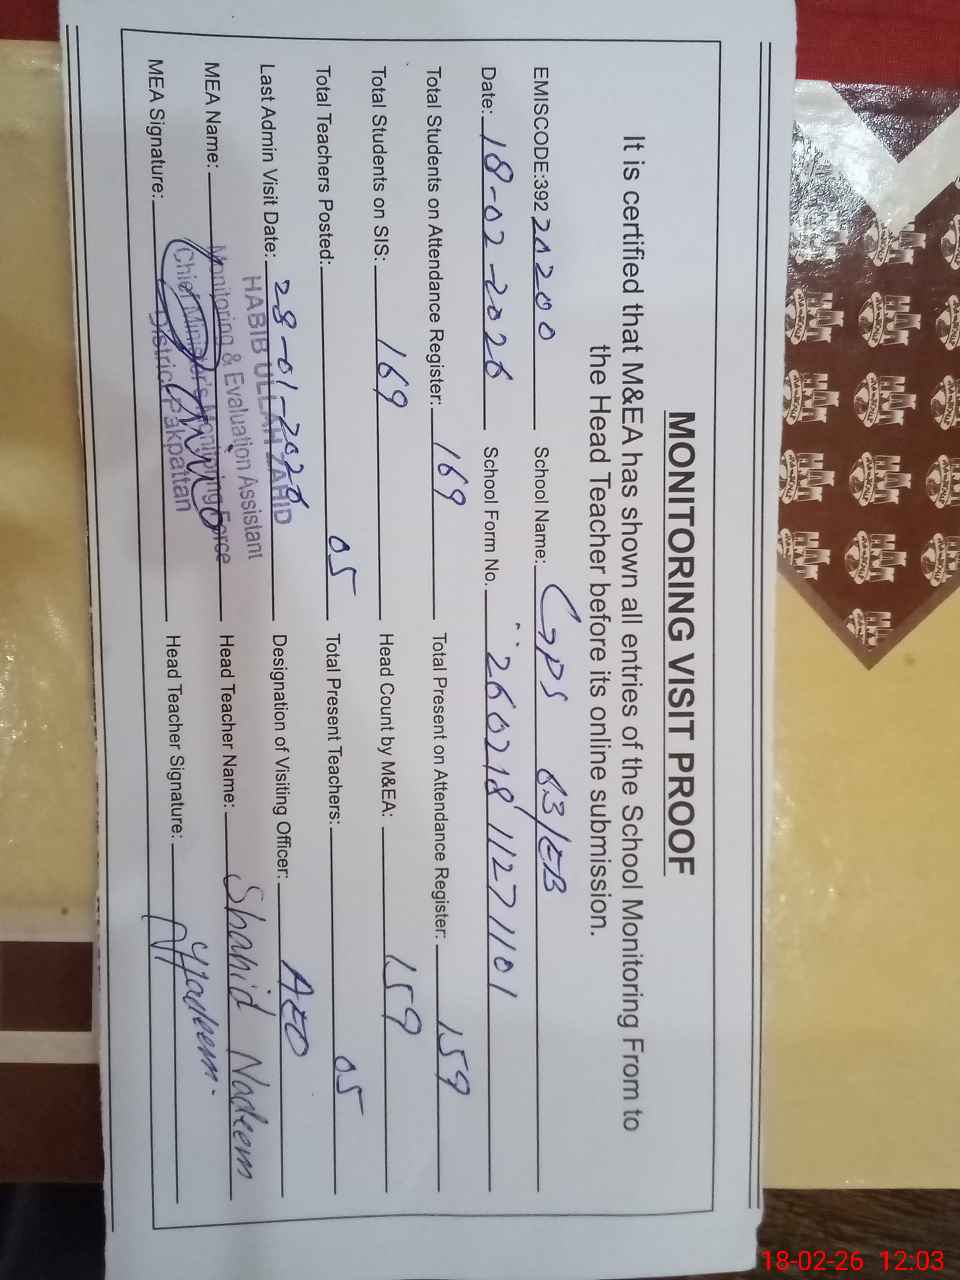 MONITORING VISIT PROOF
It is certified that M&EA has shown all entries of the School Monitoring From to
the Head Teacher before its online submission.
EMISCODE:392 21200 School Name: GPS 83/EB
Date: 18-02-2026 School Form No. 260218112711101
Total Students on Attendance Register: 169 Total Present on Attendance Register: 159
Total Students on SIS: 169 Head Count by M&EA: 159
Total Teachers Posted: 05 Total Present Teachers: 05
Last Admin Visit Date: 28-01-2026 Designation of Visiting Officer: AEO
HABIB ULLAH ZAHID
Monitoring & Evaluation Assistant
Chief Minister's Monitoring Force
District Pakpattan
MEA Name: Head Teacher Name: Shahid Nadeem
MEA Signature: Head Teacher Signature: Nadeem
18-02-26 12:03